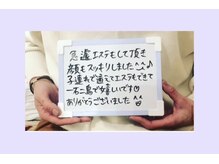 急遽エステもして頂き
顔もスッキリしました^^♪
子連れで通えてエステもできて
一石二鳥で嬉しいです☺
ありがとうございました^^